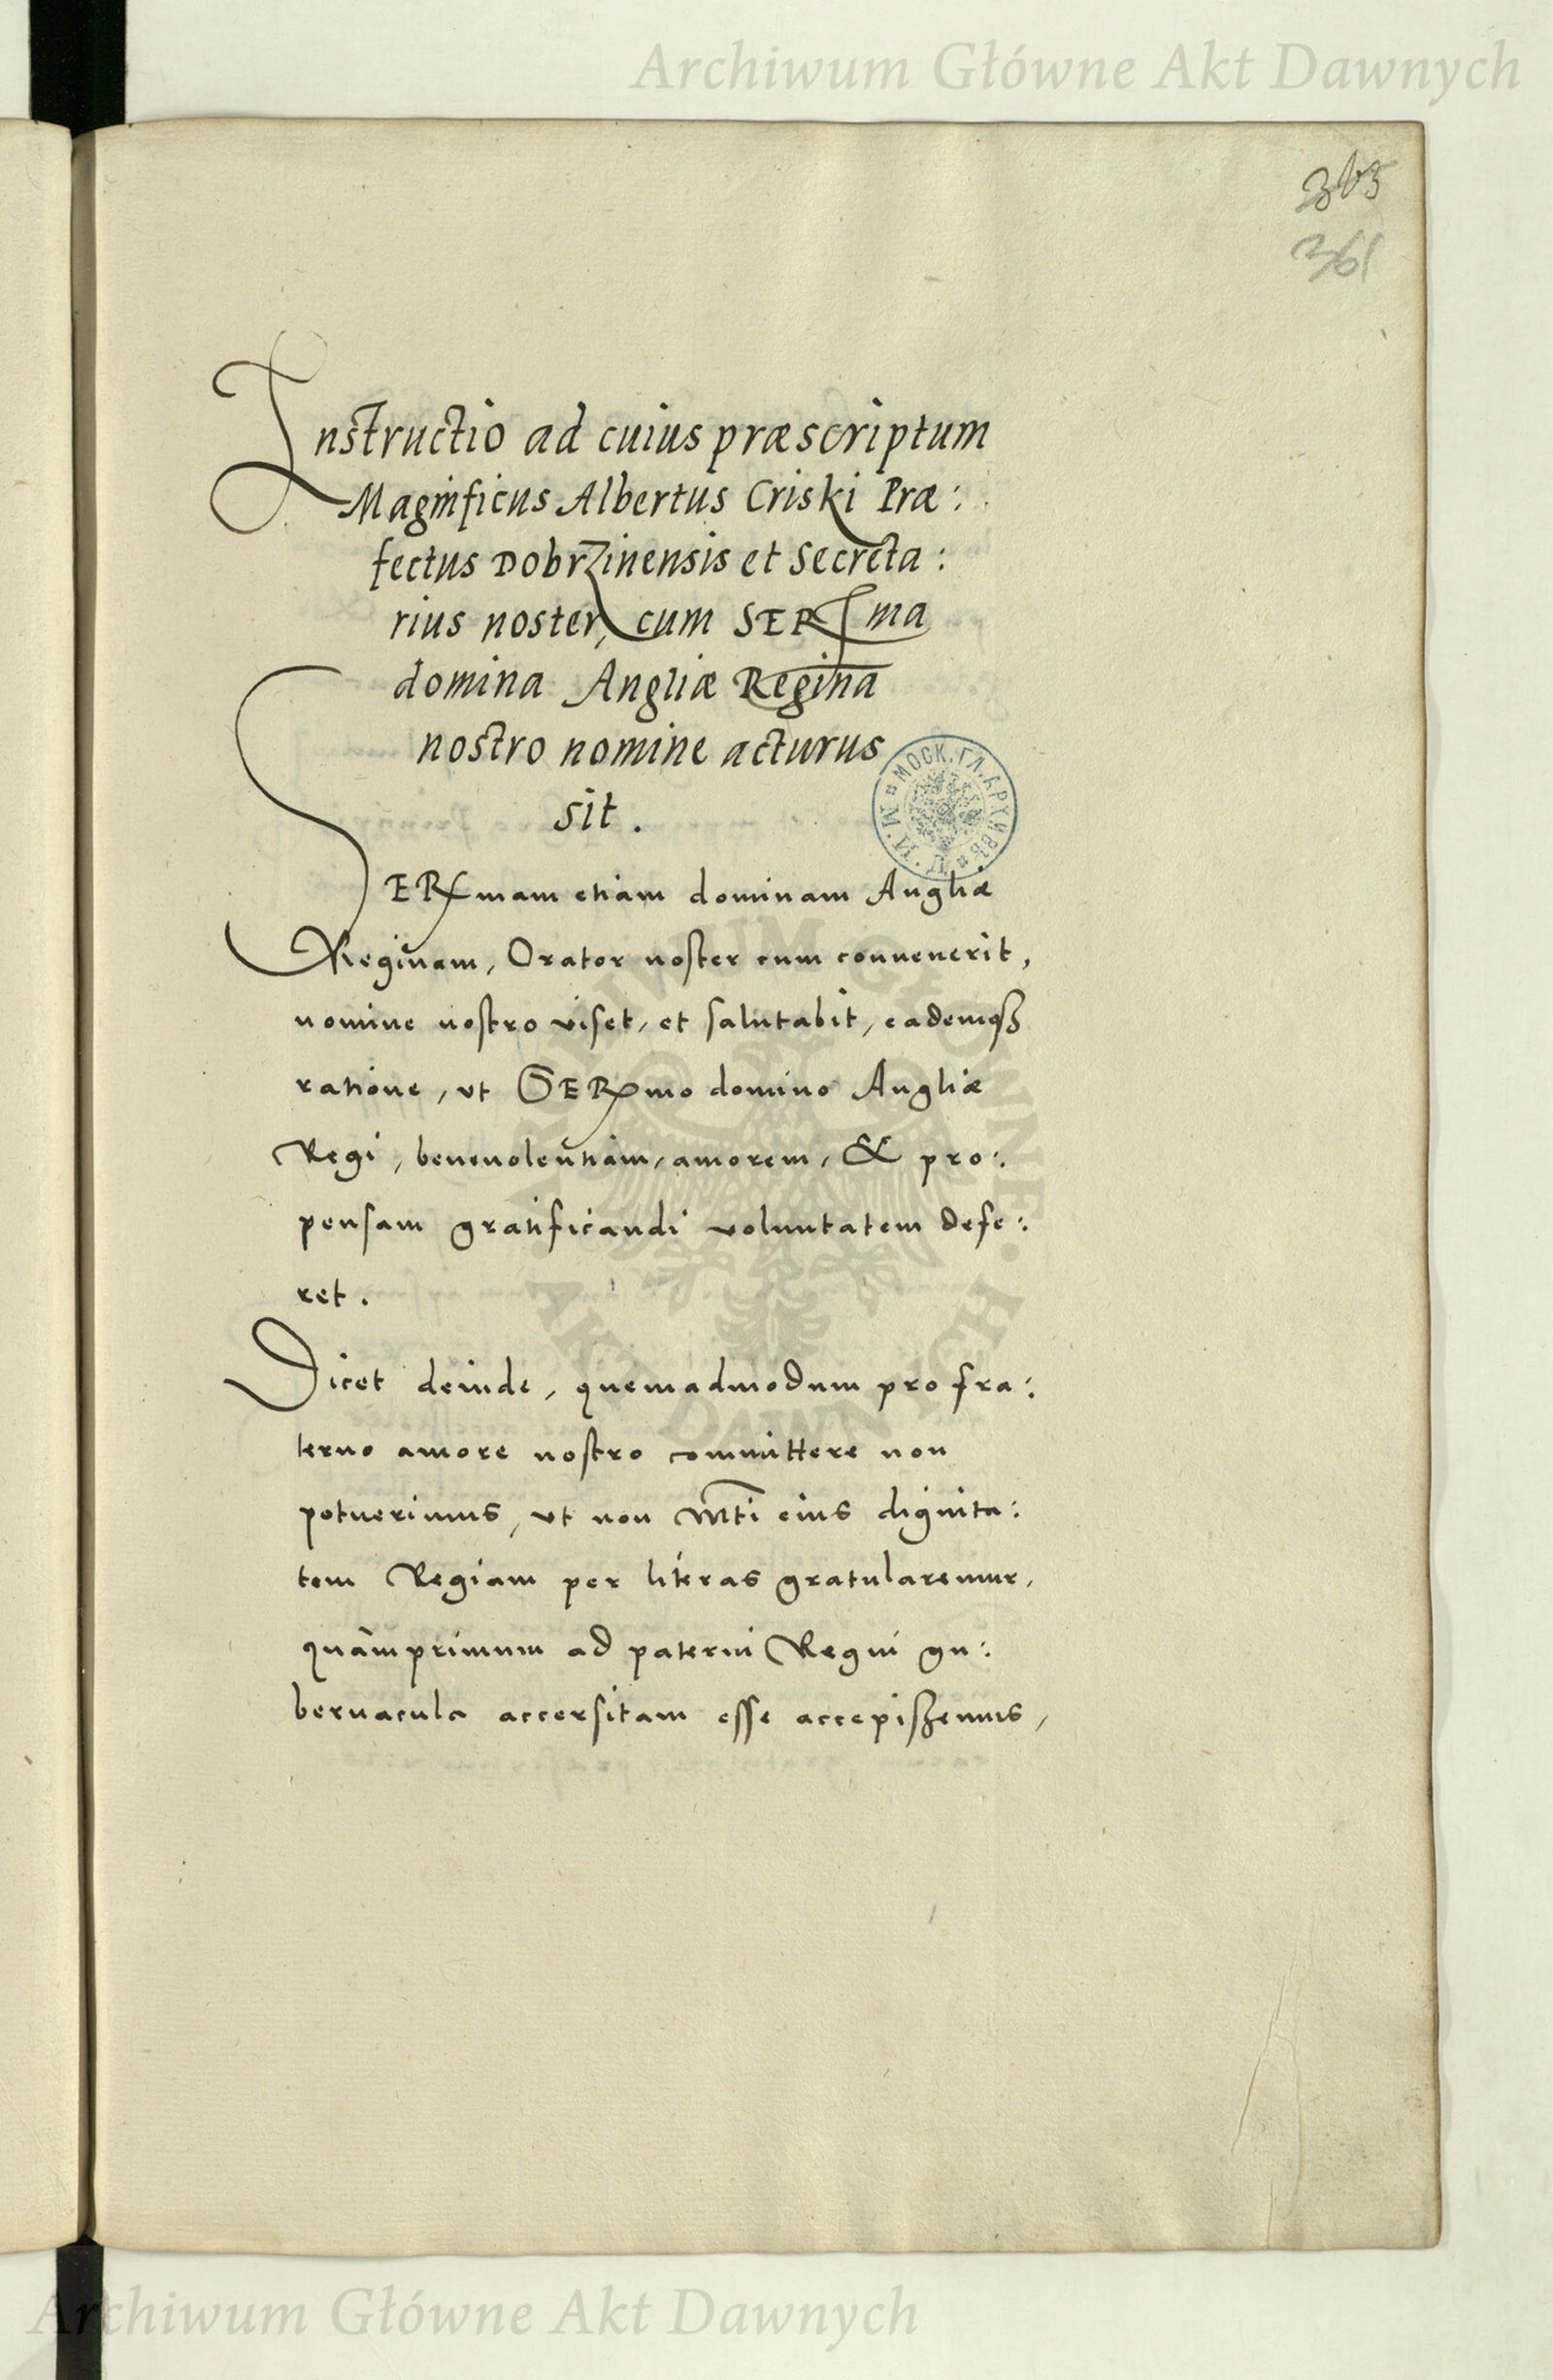 Archiwum Główne Akt Dawnych
365
361
Instructio ad cuius præscriptum
Magnificus Albertus Criski Præ:
fectus Dobrzinensis et Secreta:
rius noster, cum SERma
domina Angliæ Regina
nostro nomine acturus
sit.
МОСК. ГЛ. АРХИВЪ М. И. Д.
SERmam etiam dominam Angliæ
Reginam, Orator noster cum convenerit,
nomine nostro viset, et salutabit, eademqȝ
ratione, ut SERmo domino Angliæ
Regi, benevolentiam, amorem, & pro:
pensam gratificandi voluntatem defe:
ret.
Dicet deinde, quemadmodum pro fra:
terno amore nostro committere non
potuerimus, ut non Mti eius dignita:
tem Regiam per literas gratularemur,
quàmprimum ad paterni Regni gu:
bernacula accersitam esse accepißemus,
ARCHIWUM GŁÓWNE
AKT DAWNYCH
Archiwum Główne Akt Dawnych